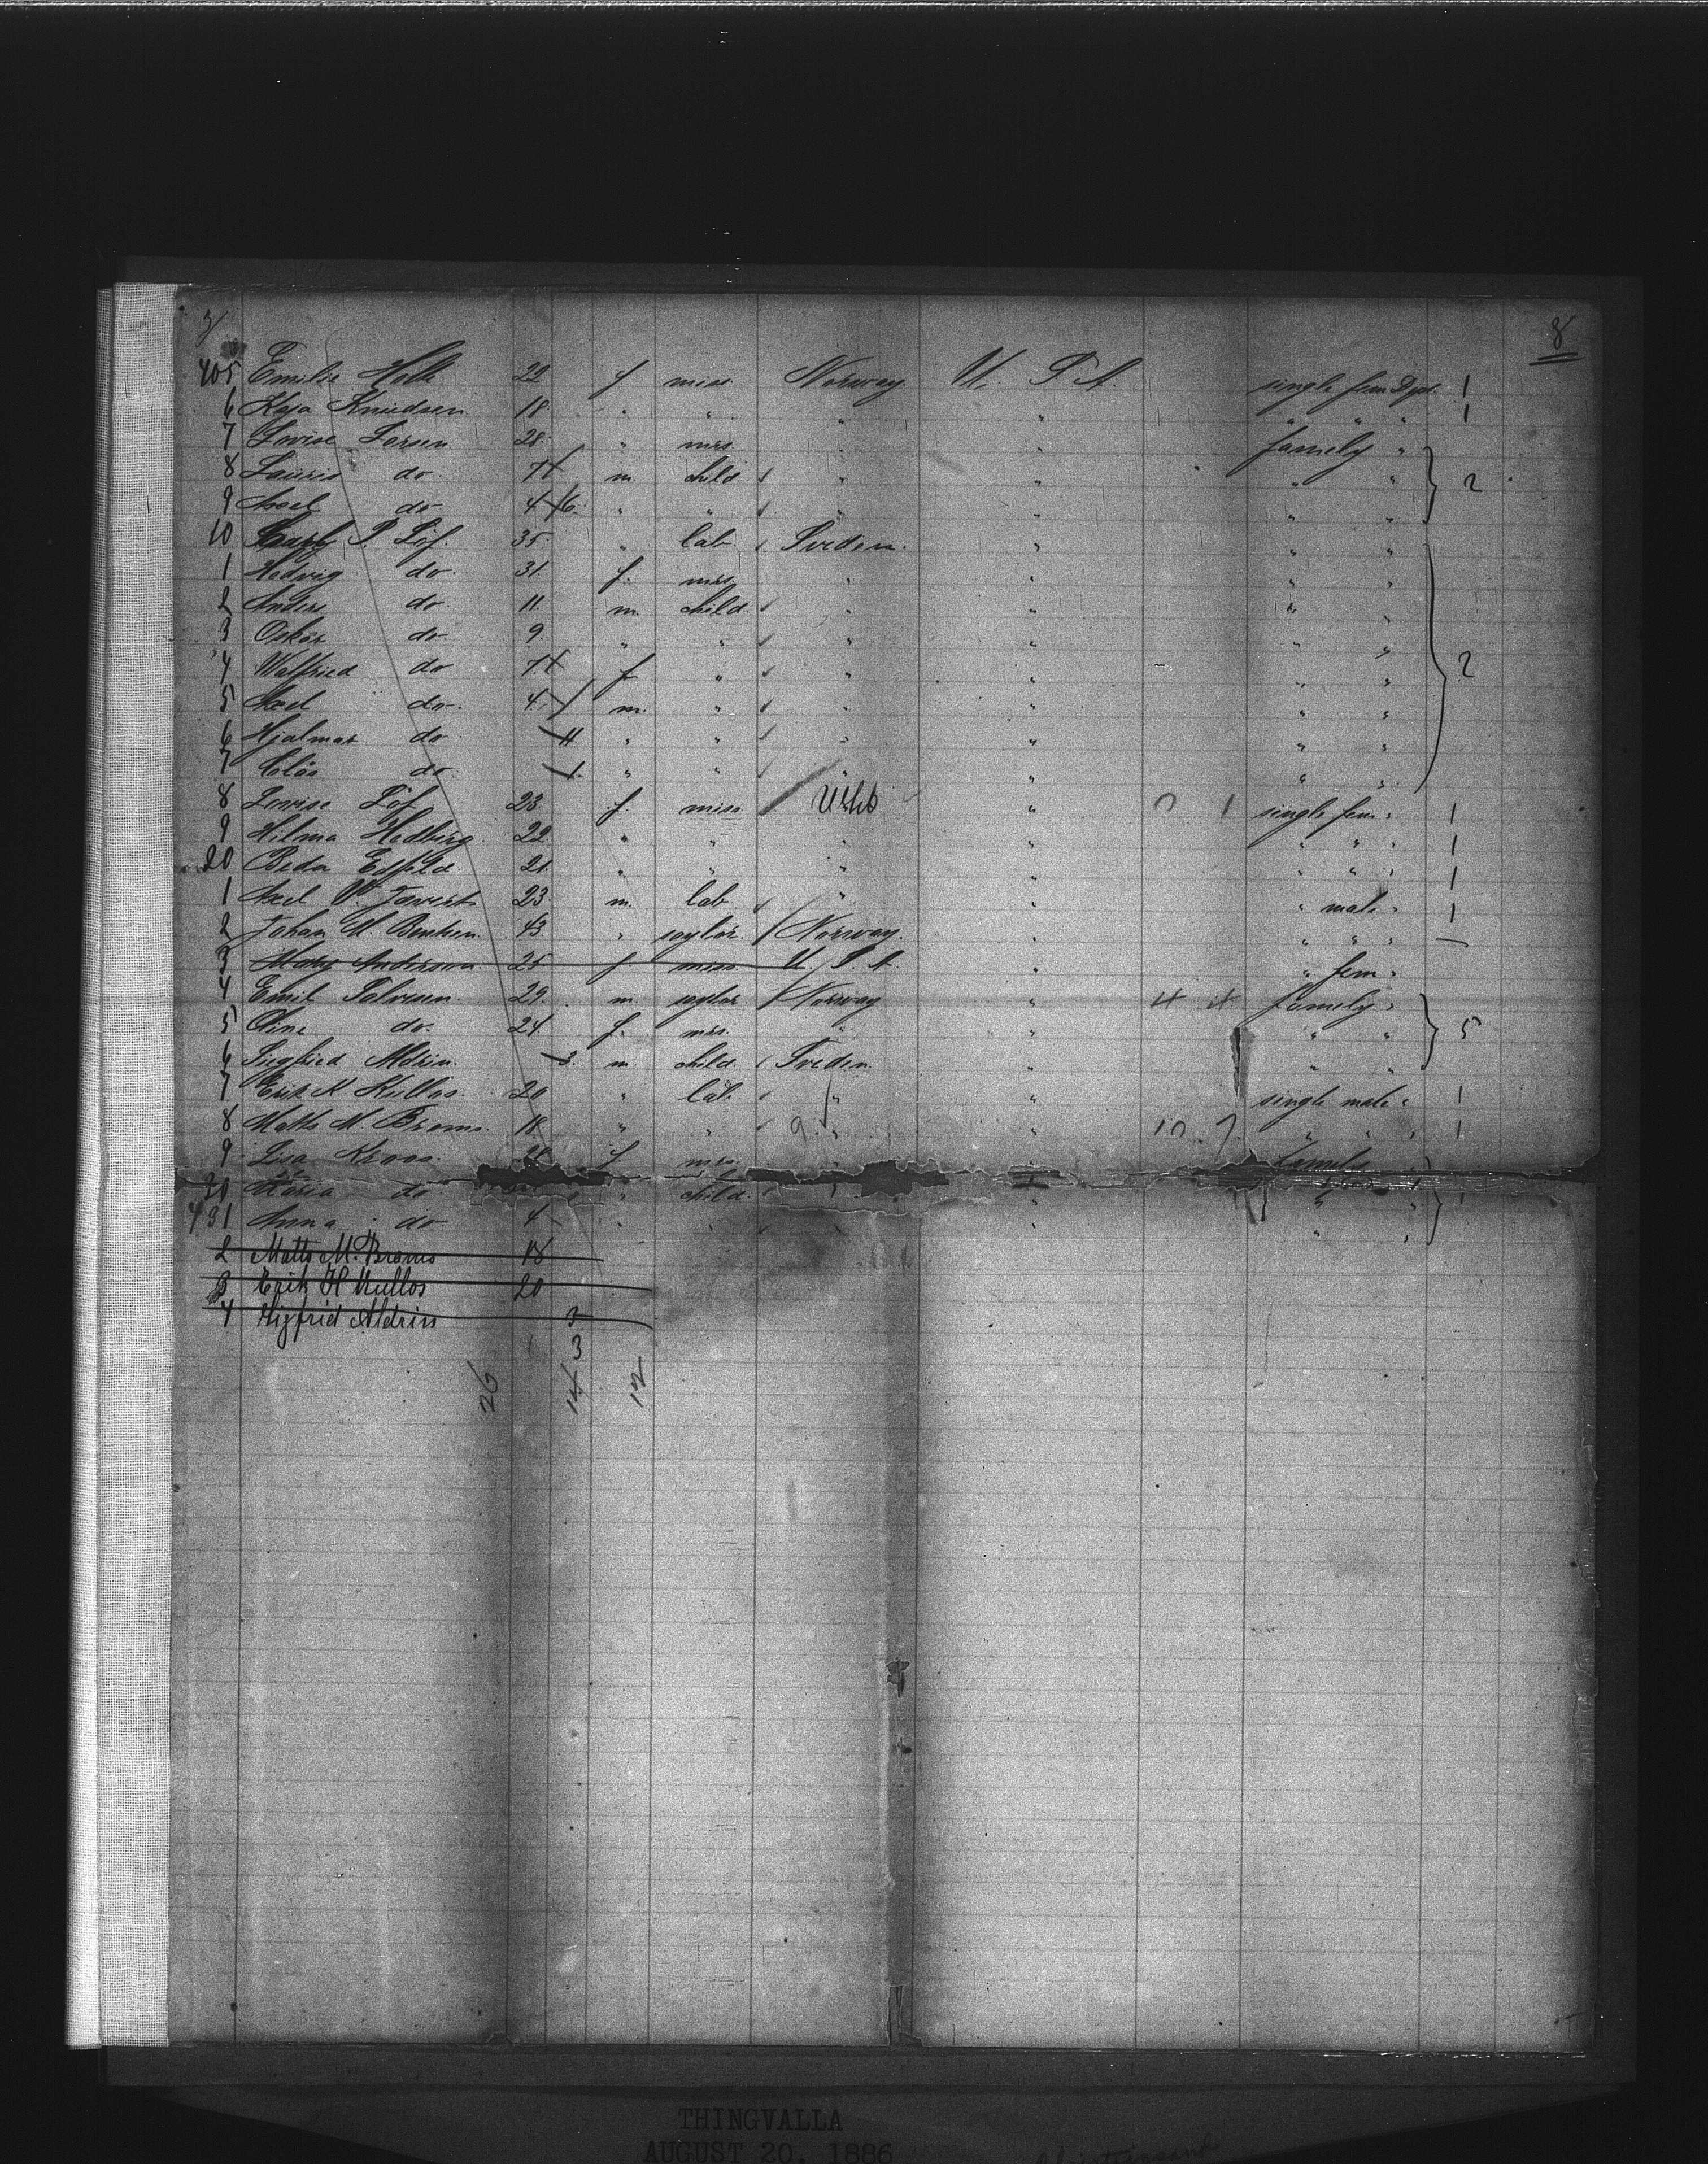 3/ 8
405 Emilie Holk 22 f miss Norway U. S. A. single fem Dpt. 1
6 Kaja Knudsen 18 " " " " " " " 1
7 Lovise Larsen 28 " mrs " " family "
8 Lauris do. 7 m child " " " " 2
9 Axel do 4 6 " " " " " "
10 Carl P. Löf. 35 " lab. Sveden. " " "
1 Hedvig do. 31. f. mrs. " " " "
2 Anders do. 11. m. child " " " "
3 Oskar do. 9. " " " " " "
4 Walfried do 7 f " " " " " 2
5 Axel do. 4. m. " " " " "
6 Hjalmar do 11 " " " " " "
7 Clås do. 1. " " " " " "
8 Lovise Löf 23 f. miss " " single fem. 1
9 Hilma Hedberg. 22. " " " " " " " 1
20 Beda Edfeld. 21. " " " " " " " 1
1 Axel W. 23. m. lab. " " " male " 1
2 Johan M. Bentsen. 43. " saylor. Norway. " " " "
3 Mary Anderson. 25 f miss U. S. A. " " fem "
4 Emil Salvesen. 29. m. saylor Norway " 4 4 family "
5 Oline do. 24 f. mrs. " " " " 5
6 Siegfried Aldrin. 3. m. child. Sveden. " " "
7 Erik H Kullos. 20 " lab. " " single male " 1
8 Matts M. Broms. 18. " " 9. " " 10. 7. " " " 1
9 Lisa Kroos. f mrs. " family "
30 Maria do " child. " " " " 1
431 Anna do 4 " " " " " "
2 Matts M. Broms 18
3 Erik H Kullos 20
4 Sigfrid Aldrin 3
3
26 14 12
THINGVALLA
AUGUST 20, 1886